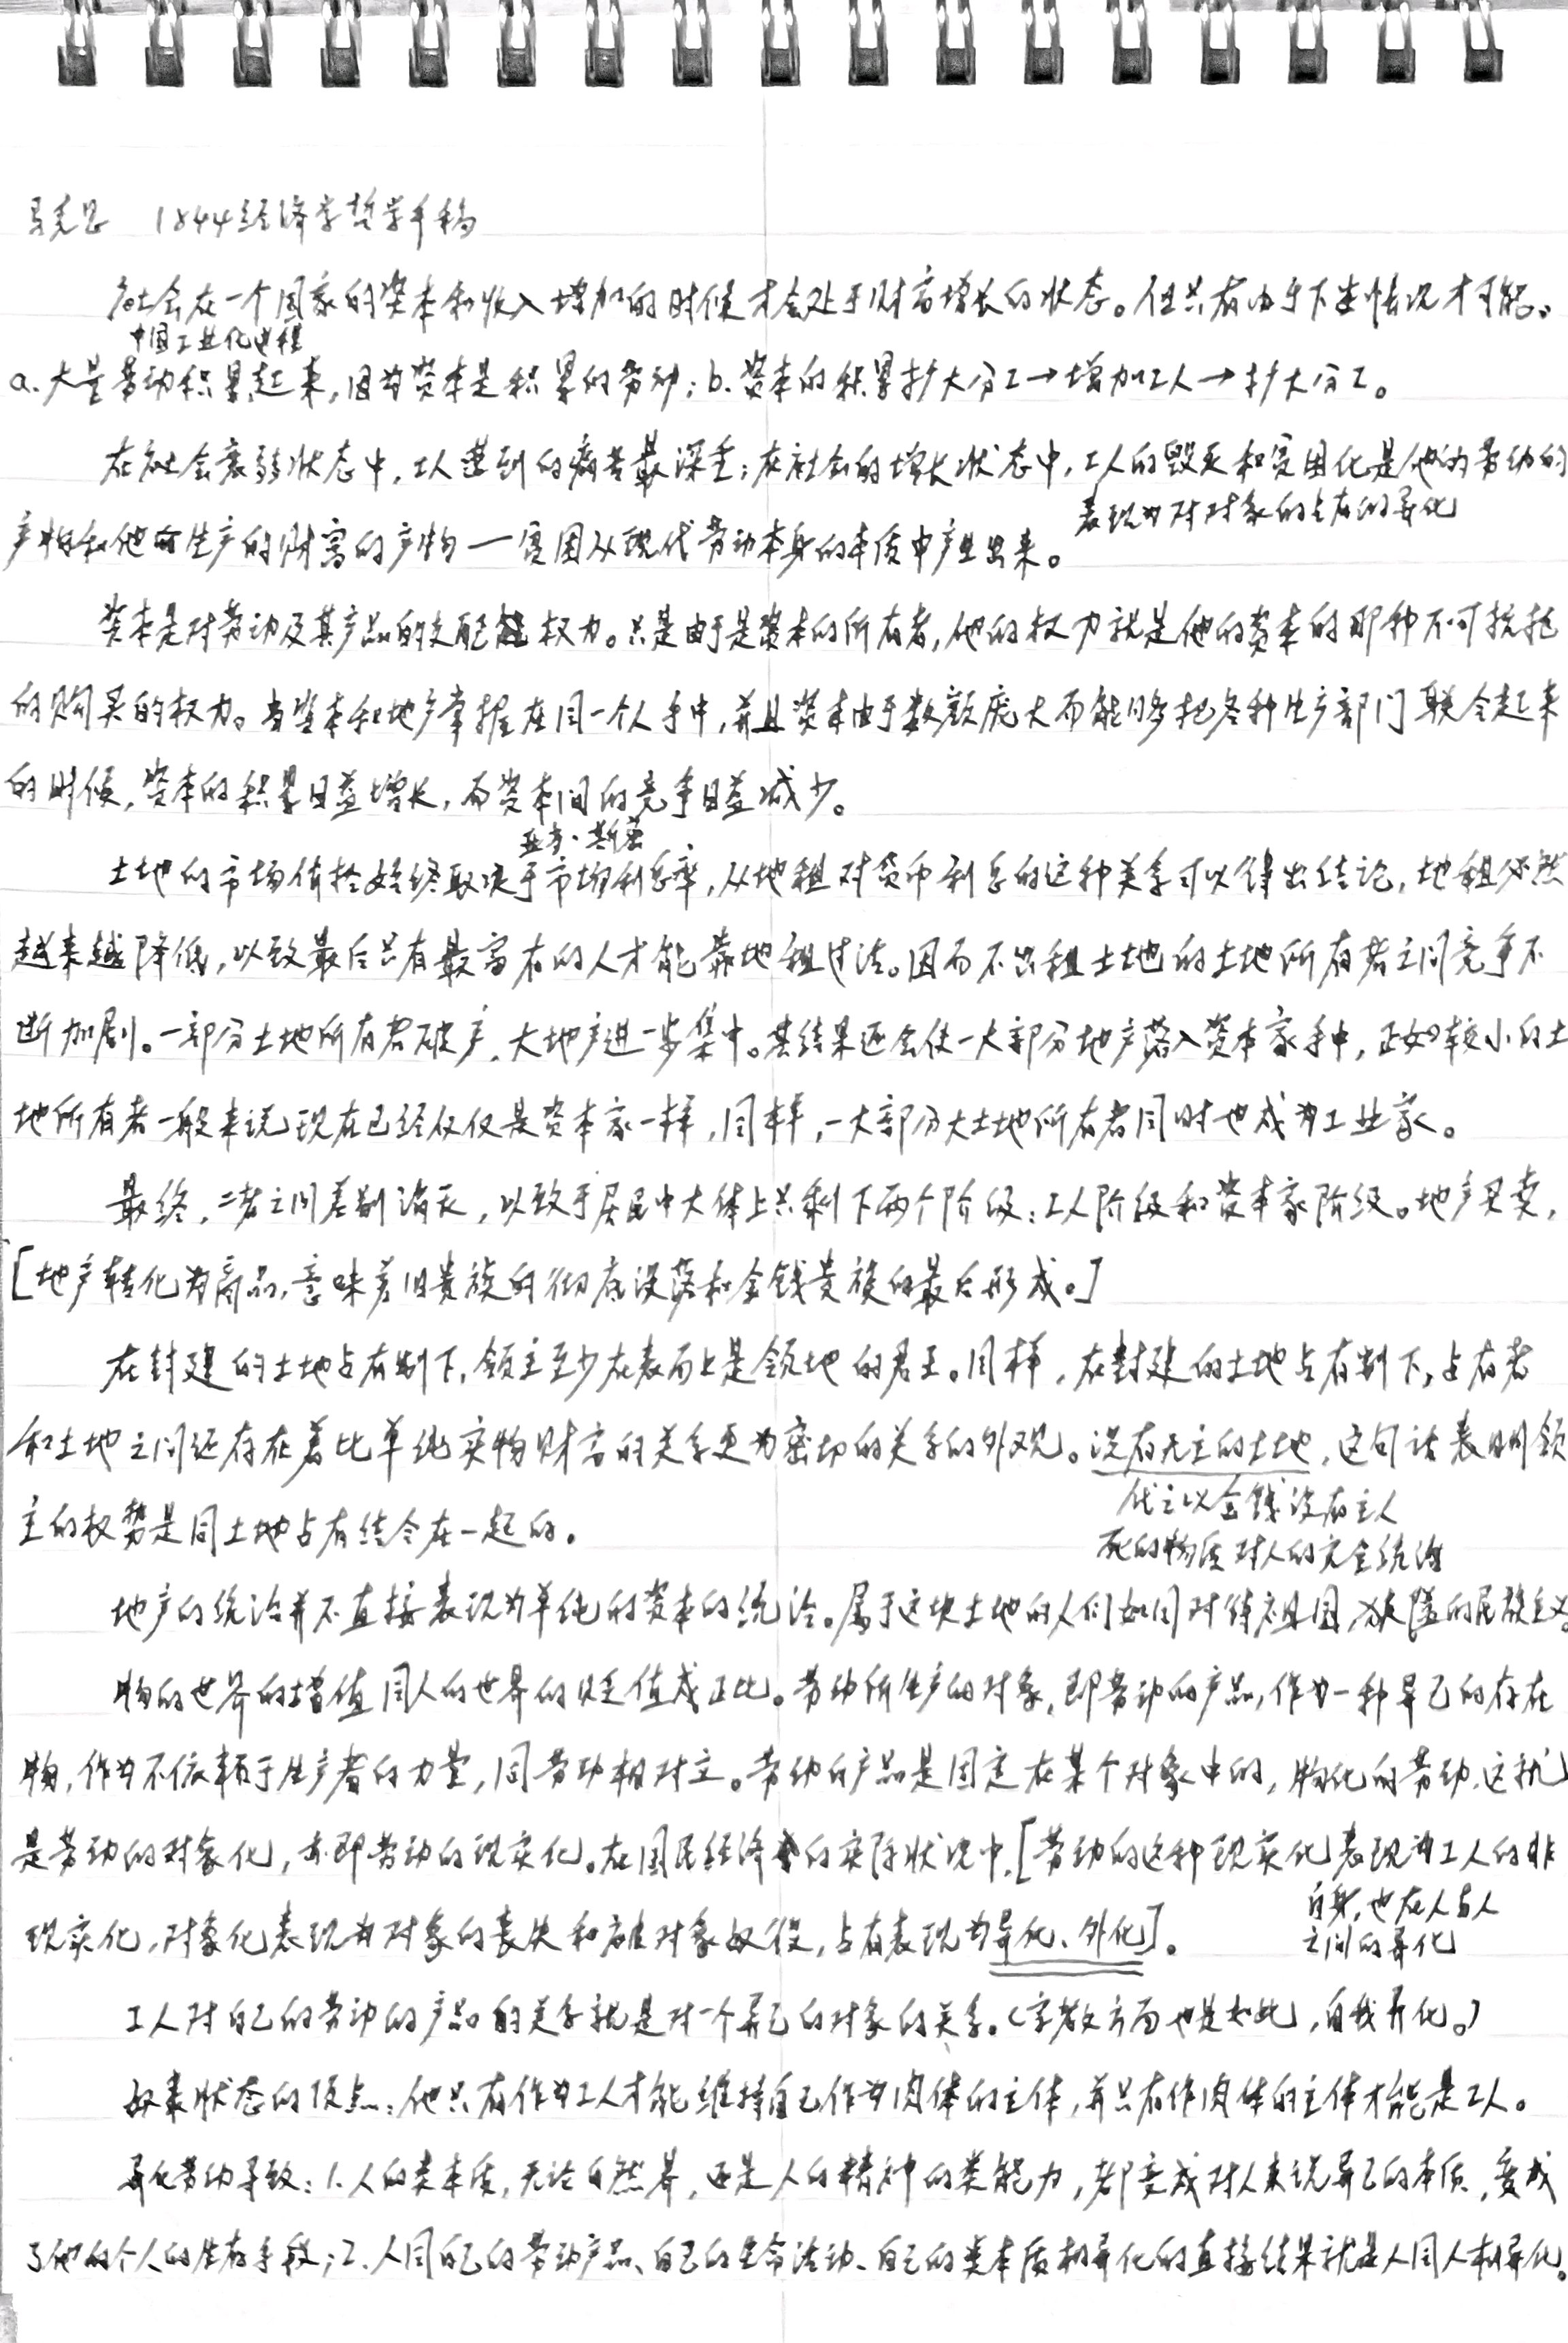 马克思 1844经济学哲学手稿
社会在一个国家的资本和收入增加的时候才会处于财富增长的状态。但只有由于下述情况才可能。
中国工业化进程
a.大量劳动积累起来,因为资本是积累的劳动;b.资本的积累扩大分工→增加工人→扩大分工。
在社会衰弱状态中,工人遭到的痛苦最深重;在社会的增长状态中,工人的毁灭和贫困化是他的劳动的
表现为对对象的占有的异化
产物和他生产的财富的产物—贫困从现代劳动本身的本质中产生出来。
资本是对劳动及其产品的支配权力。只是由于是资本的所有者,他的权力就是他的资本的那种不可抗拒
的购买的权力。当资本和地产掌握在同一个人手中,并且资本由于数额庞大而能够把各种生产部门联合起来
的时候,资本的积累日益增长,而资本间的竞争日益减少。
亚当·斯密
土地的市场价格始终取决于市场利息率,从地租对货币利息的这种关系可以得出结论,地租必然
越来越降低,以致最后只有最富有的人才能靠地租过活。因而不出租土地的土地所有者之间竞争不
断加剧。一部分土地所有者破产,大地产进一步集中。其结果还会使一大部分地产落入资本家手中,正如较小的土
地所有者一般来说现在已经仅仅是资本家一样,同样,一大部分大土地所有者同时也成为工业家。
最终,二者之间差别消灭,以致于居民中大体上只剩下两个阶级:工人阶级和资本家阶级。地产买卖,
[地产转化为商品,意味着旧贵族的彻底没落和金钱贵族的最后形成。]
在封建的土地占有制下,领主至少在表面上是领地的君王。同样,在封建的土地占有制下,占有者
和土地之间还存在着比单纯实物财富的关系更为密切的关系的外观。没有无主的土地,这句话表明领
代之以金钱没有主人
主的权势是同土地占有结合在一起的。
死的物质对人的完全统治
地产的统治并不直接表现为单纯的资本的统治。属于这块土地的人们如同对待祖国,狭隘的民族主义。
物的世界的增值同人的世界的贬值成正比。劳动所生产的对象,即劳动的产品,作为一种异己的存在
物,作为不依赖于生产者的力量,同劳动相对立。劳动的产品是固定在某个对象中的,物化的劳动,这就
是劳动的对象化,亦即劳动的现实化。在国民经济的实际状况中,[劳动的这种现实化表现为工人的非
自身,也在人与人
现实化,对象化表现为对象的丧失和被对象奴役,占有表现为异化、外化]。
之间的异化
工人对自己的劳动的产品的关系就是对一个异己的对象的关系。(宗教方面也是如此,自我异化。)
奴隶状态的顶点:他只有作为工人才能维持自己作为肉体的主体,并只有作肉体的主体才能是工人。
异化劳动导致:1.人的类本质,无论自然界,还是人的精神的类能力,都变成对人来说异己的本质,变成
了他的个人的生存手段;2.人同自己的劳动产品、自己的生命活动、自己的类本质相异化的直接结果就是人同人相异化。